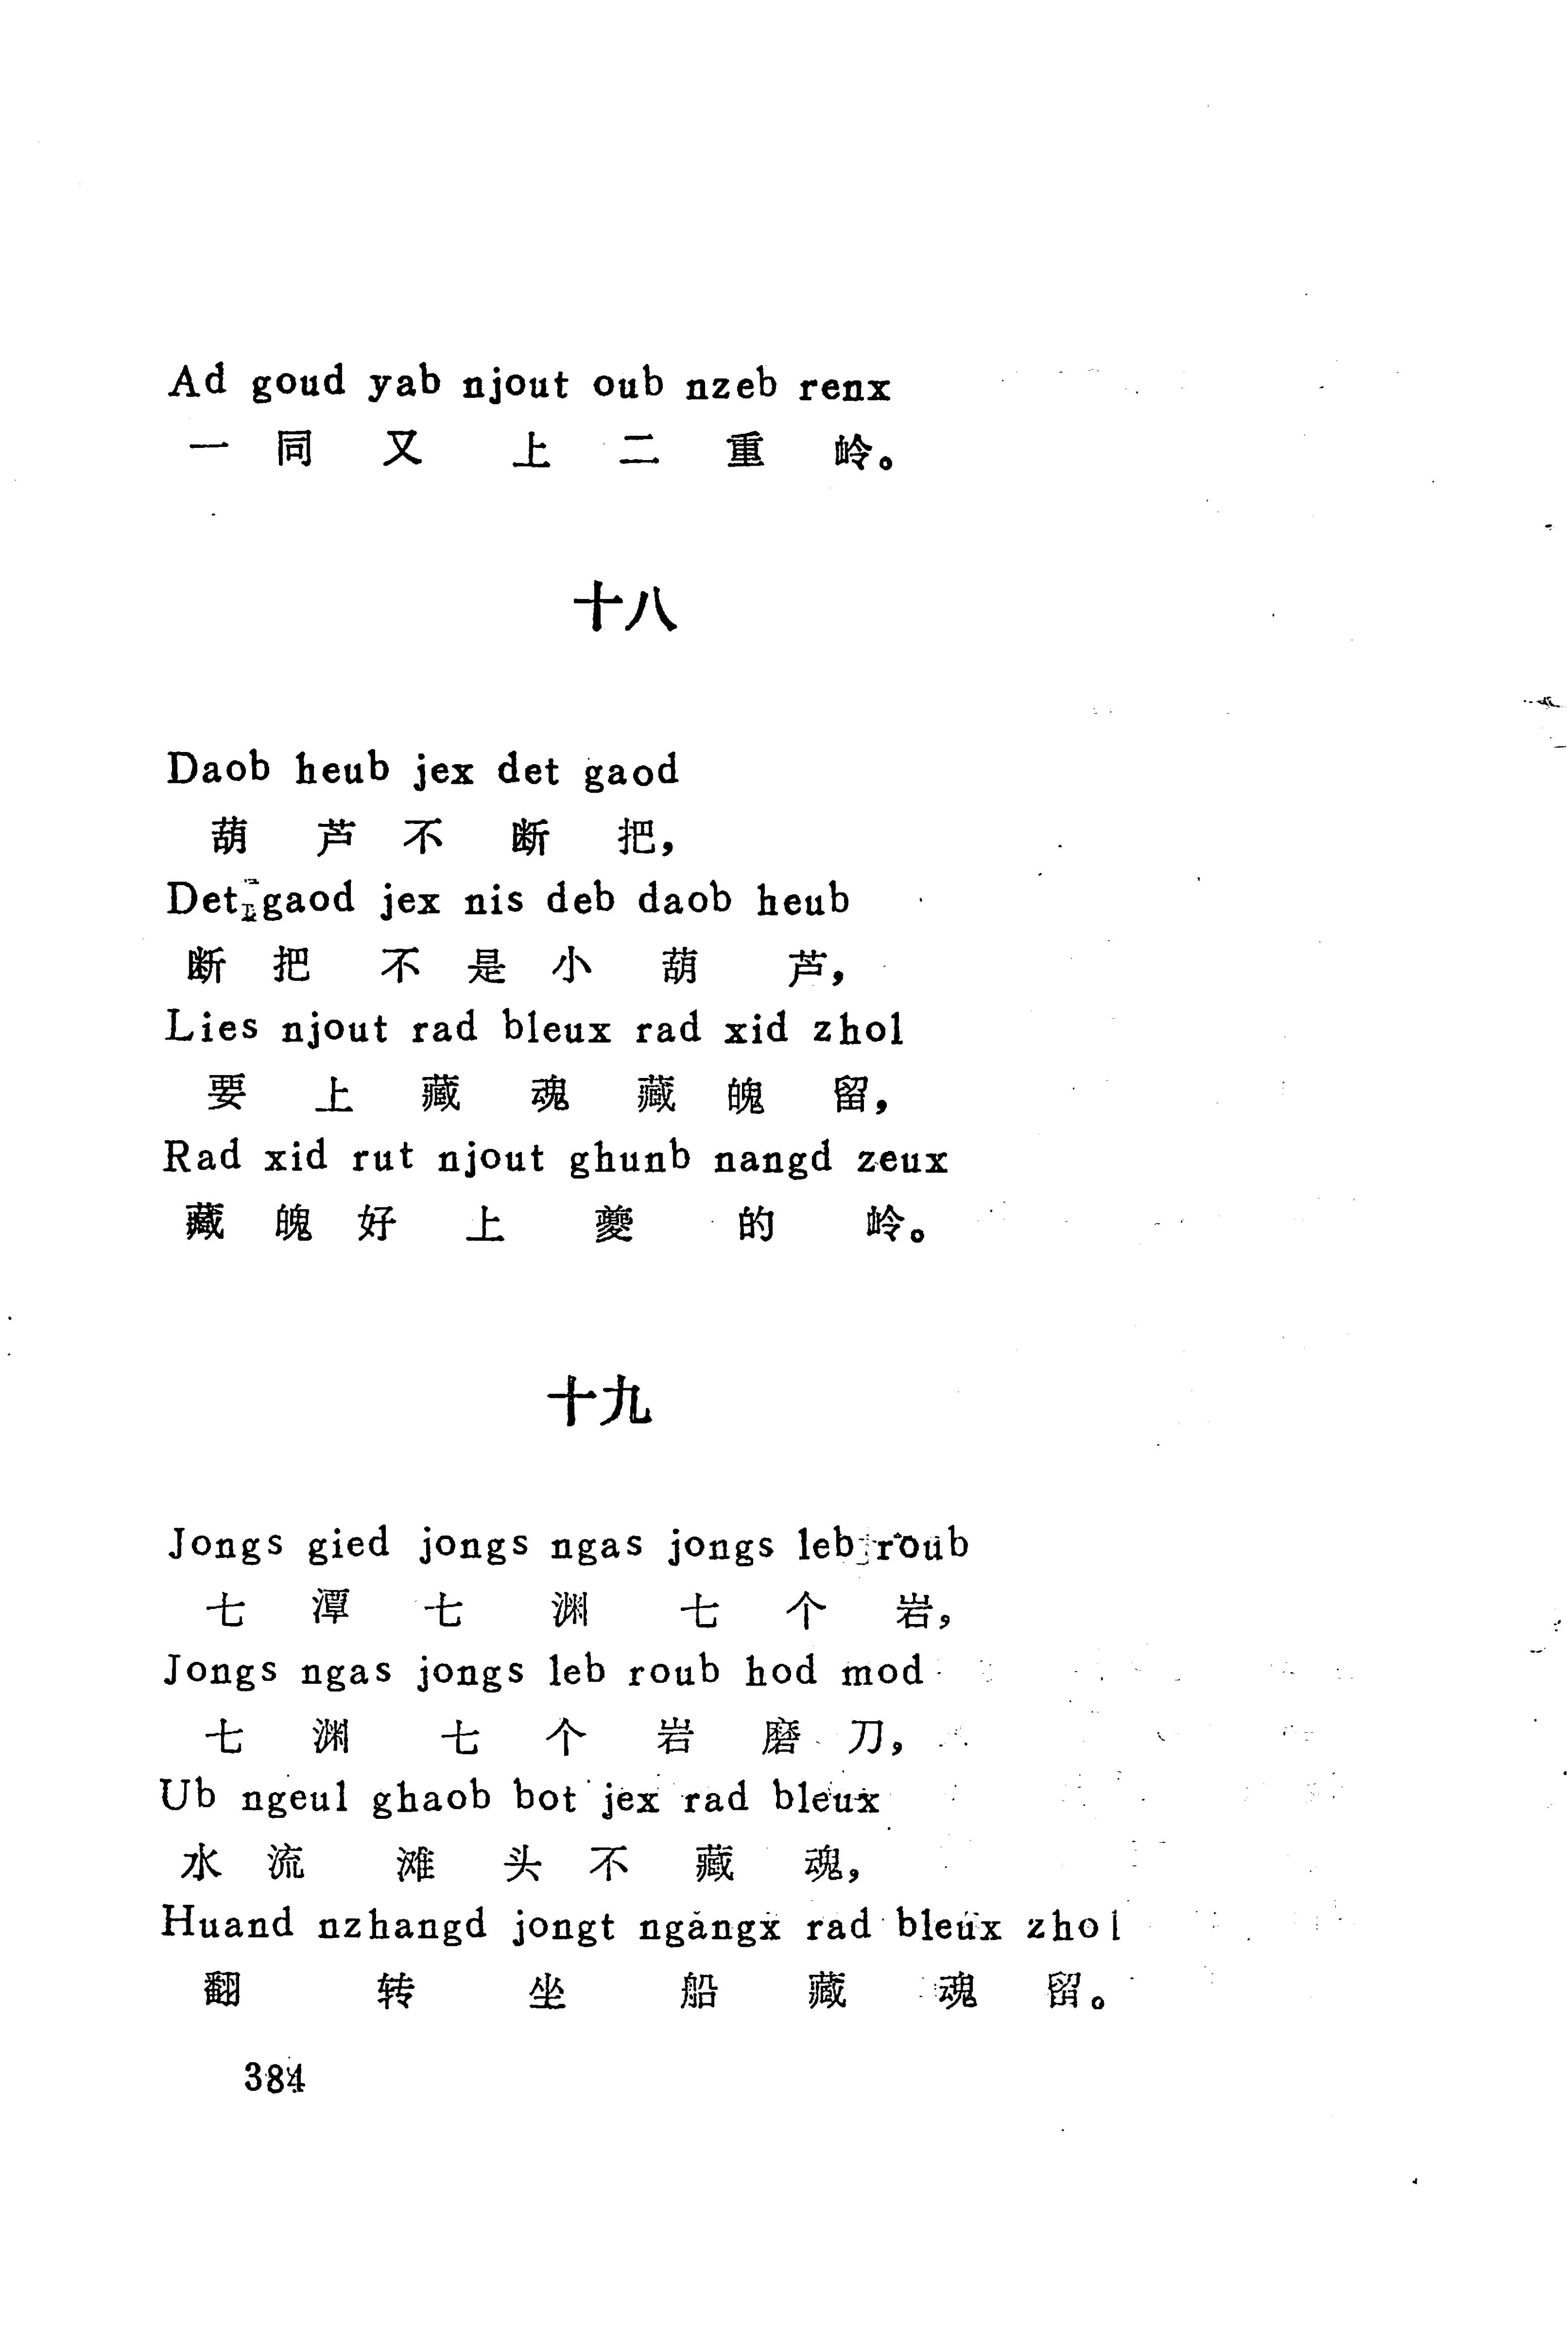 Ad goud yab njout oub nzeb renx
一 同 又 上 二 重 岭。
十八
Daob heub jex det gaod
葫 芦 不 断 把,
Det gaod jex nis deb daob heub
断 把 不 是 小 葫 芦,
Lies njout rad bleux rad xid zhol
要 上 藏 魂 藏 魄 留,
Rad xid rut njout ghunb nangd zeux
藏 魄 好 上 夔 的 岭。
十九
Jongs gied jongs ngas jongs leb roub
七 潭 七 渊 七 个 岩,
Jongs ngas jongs leb roub hod mod
七 渊 七 个 岩 磨 刀,
Ub ngeul ghaob bot jex rad bleux
水 流 滩 头 不 藏 魂,
Huand nzhangd jongt ngangx rad bleux zhol
翻 转 坐 船 藏 魂 留。
384